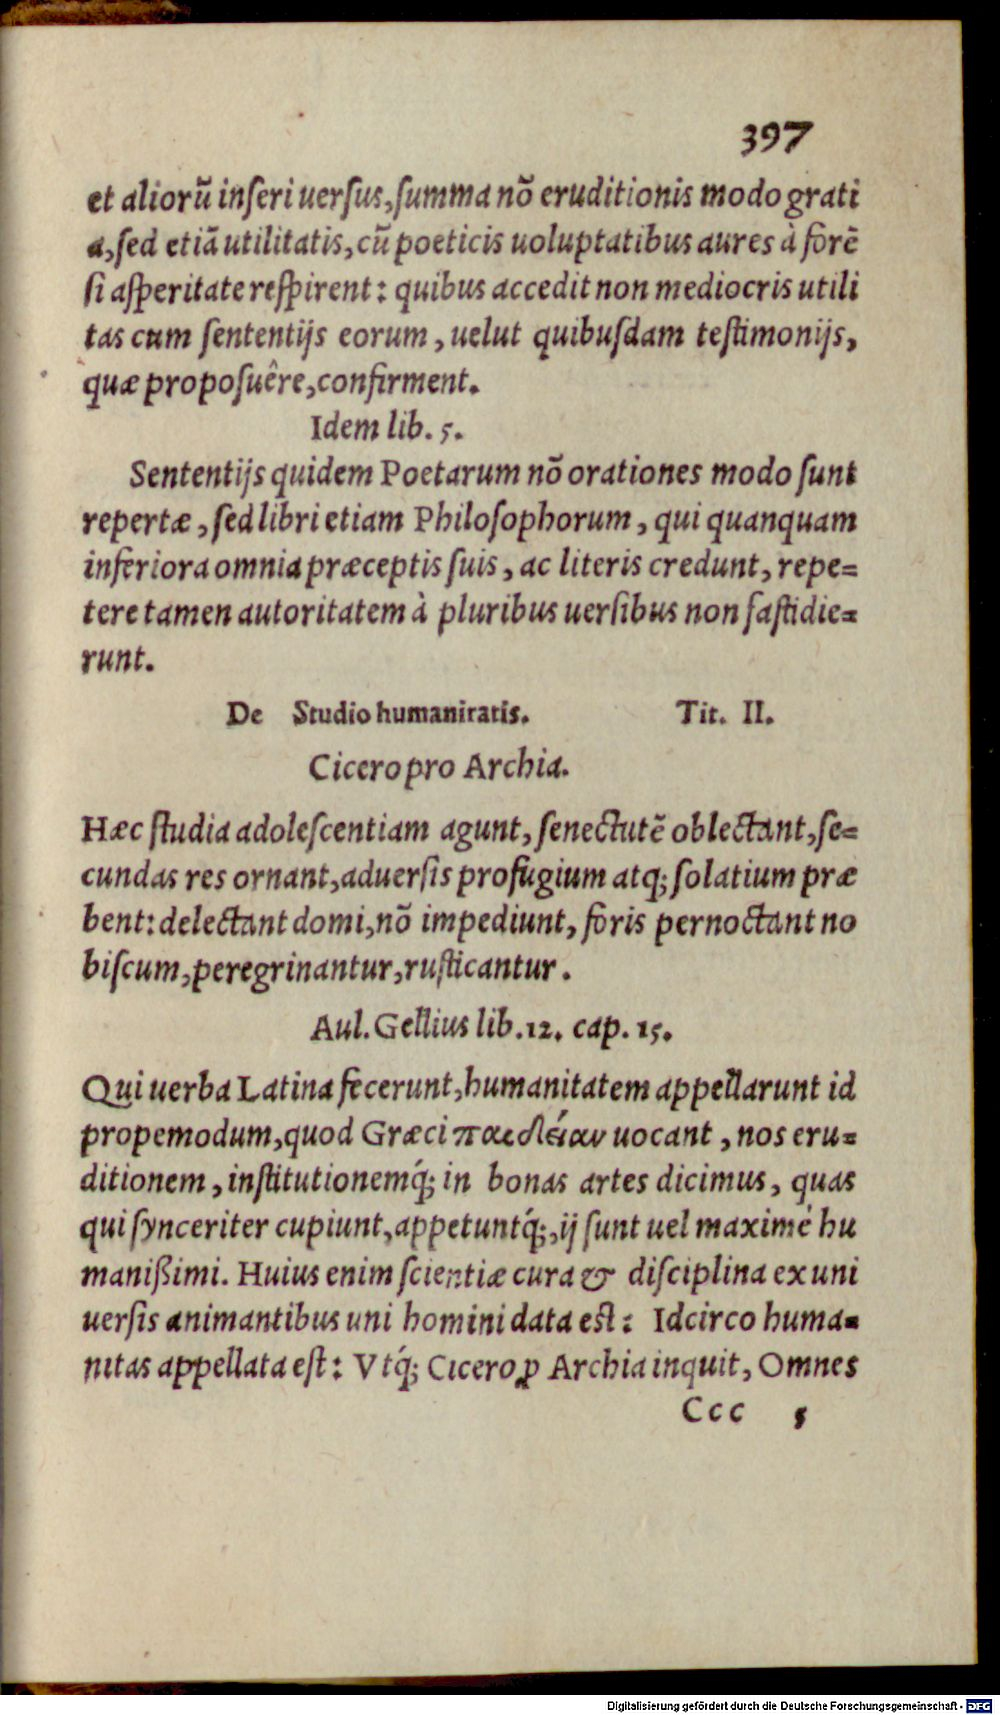 397
et aliorũ inſeri uerſus,ſumma nõ eruditionis modo grati
a,ſed etiã utilitatis,cũ poeticis uoluptatibus aures à forẽ
ſi aſperitate reſpirent: quibus accedit non mediocris utili
tas cum ſententijs eorum, uelut quibuſdam teſtimonijs,
quæ propoſuêre,confirment.
Idem lib. 5.
Sententijs quidem Poetarum nõ orationes modo ſunt
repertæ, ſed libri etiam Philoſophorum, qui quanquam
inferiora omnia præceptis ſuis, ac literis credunt, repe=
tere tamen autoritatem à pluribus uerſibus non faſtidie=
runt.
De Studio humaniratis. Tit. II.
Cicero pro Archia.
Hæc ſtudia adoleſcentiam agunt, ſenectutẽ oblectant,ſe=
cundas res ornant,aduerſis profugium atq; ſolatium præ
bent: delectant domi,nõ impediunt, foris pernoctant no
biſcum,peregrinantur,ruſticantur.
Aul. Gellius lib.12. cap. 15.
Qui uerba Latina fecerunt,humanitatem appellarunt id
propemodum,quod Græci παιδείαν uocant, nos eru=
ditionem, inſtitutionemq́; in bonas artes dicimus, quas
qui ſynceriter cupiunt,appetuntq́;,ij ſunt uel maximè hu
manißimi. Huius enim ſcientiæ cura & diſciplina ex uni
uerſis animantibus uni homini data eſt: Idcirco huma=
nitas appellata eſt: Vtq́; Cicero ꝓ Archia inquit, Omnes
Ccc 5
Digitalisierung gefördert durch die Deutsche Forschungsgemeinschaft - DFG